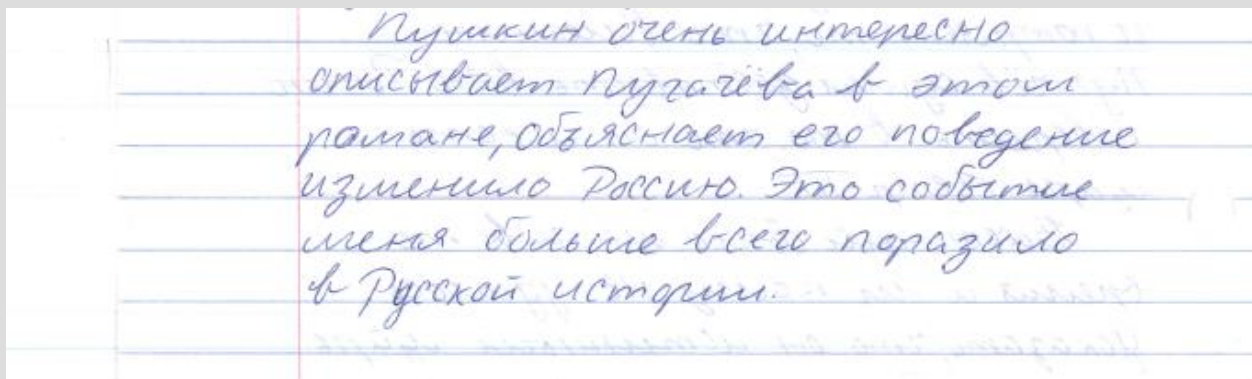 Пушкин очень интересно
описывает Пугачёва в этом
рамане, объяснает его поведение
изменило Россию. Это событие
меня больше всего поразило
в Русской истории.